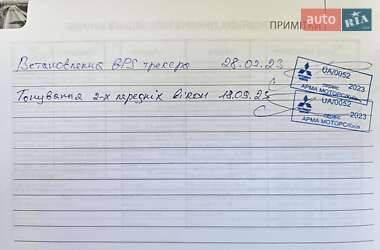 ПРИМІТКИ
auto RIA.com
Встановлення GPS трекера 28.02.23
UA/0052
2023
АРМА МОТОРС
Тонування 2-х передніх вікон 18.09.23
UA/0052
2023
АРМА МОТОРС